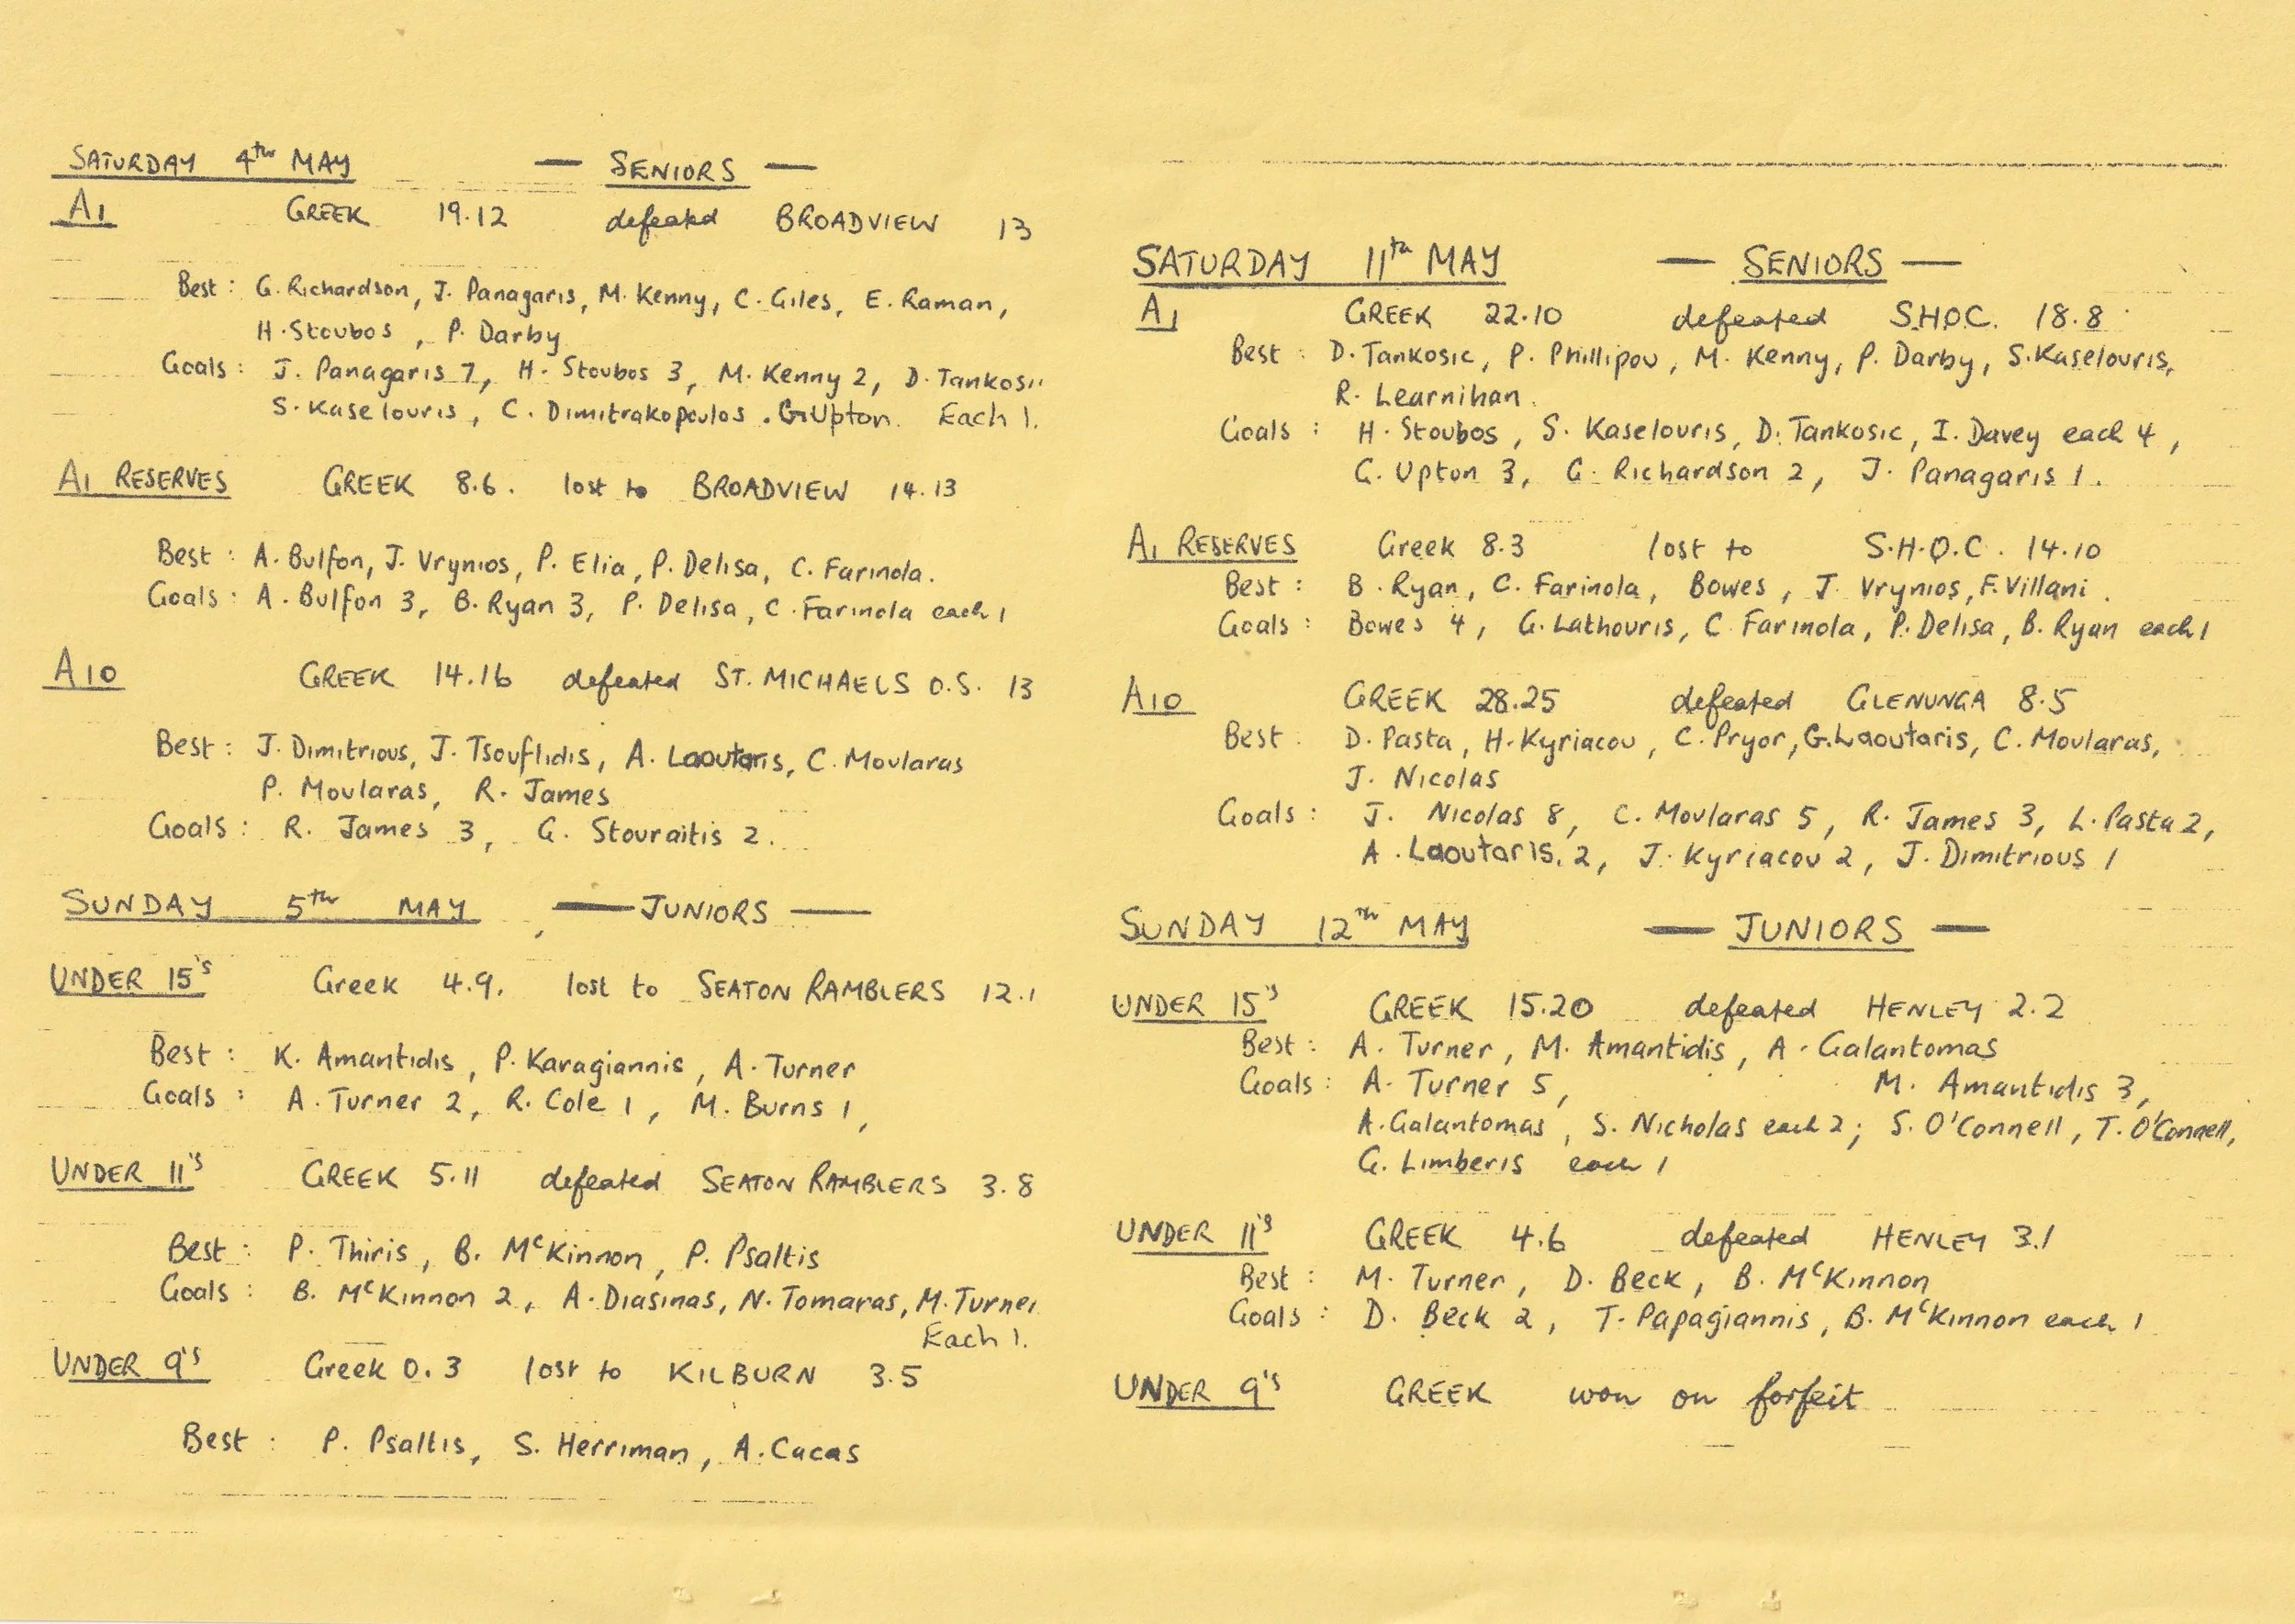 SATURDAY 4th MAY — SENIORS —
A1 GREEK 19.12 defeated BROADVIEW 13
Best : G. Richardson, J. Panagaris, M. Kenny, C. Giles, E. Raman,
H. Stoubos , P. Darby
Goals : J. Panagaris 7, H. Stoubos 3, M. Kenny 2, D. Tankosic
S. Kaselouris , C. Dimitrakopoulos . G. Upton. Each 1.
A1 RESERVES GREEK 8.6. lost to BROADVIEW 14.13
Best : A. Bulfon, J. Vrynios, P. Elia, P. Delisa, C. Farinola.
Goals : A. Bulfon 3, B. Ryan 3, P. Delisa, C. Farinola each 1
A10 GREEK 14.16 defeated ST. MICHAELS O.S. 13
Best : J. Dimitrious, J. Tsouflidis, A. Laoutaris, C. Moularas
P. Moularas, R. James
Goals : R. James 3, G. Stouraitis 2.
SUNDAY 5th MAY — JUNIORS —
UNDER 15's Greek 4.9. lost to SEATON RAMBLERS 12.1
Best : K. Amantidis, P. Karagiannis, A. Turner
Goals : A. Turner 2, R. Cole 1, M. Burns 1,
UNDER 11's GREEK 5.11 defeated SEATON RAMBLERS 3.8
Best : P. Thiris, B. McKinnon, P. Psaltis
Goals : B. McKinnon 2, A. Diasinas, N. Tomaras, M. Turner
Each 1.
UNDER 9's Greek 0.3 lost to KILBURN 3.5
Best : P. Psaltis, S. Herriman, A. Cacas
SATURDAY 11th MAY — SENIORS —
A1 GREEK 22.10 defeated S.H.O.C. 18.8
Best : D. Tankosic, P. Phillipou, M. Kenny, P. Darby, S. Kaselouris,
R. Learnihan.
Goals : H. Stoubos, S. Kaselouris, D. Tankosic, I. Davey each 4,
G. Upton 3, G. Richardson 2, J. Panagaris 1.
A1 RESERVES Greek 8.3 lost to S.H.O.C. 14.10
Best : B. Ryan, C. Farinola, Bowes, J. Vrynios, F. Villani.
Goals : Bowes 4, G. Lathouris, C. Farinola, P. Delisa, B. Ryan each 1
A10 GREEK 28.25 defeated GLENUNGA 8.5
Best : D. Pasta, H. Kyriacou, C. Pryor, G. Laoutaris, C. Moularas,
J. Nicolas
Goals : J. Nicolas 8, C. Moularas 5, R. James 3, L. Pasta 2,
A. Laoutaris. 2, J. Kyriacou 2, J. Dimitrious 1
SUNDAY 12th MAY — JUNIORS —
UNDER 15's GREEK 15.20 defeated HENLEY 2.2
Best : A. Turner, M. Amantidis, A. Galantomas
Goals : A. Turner 5, M. Amantidis 3,
A. Galantomas, S. Nicholas each 2; S. O'Connell, T. O'Connell,
G. Limberis each 1
UNDER 11's GREEK 4.6 defeated HENLEY 3.1
Best : M. Turner, D. Beck, B. McKinnon
Goals : D. Beck 2, T. Papagiannis, B. McKinnon each 1
UNDER 9's GREEK won on forfeit